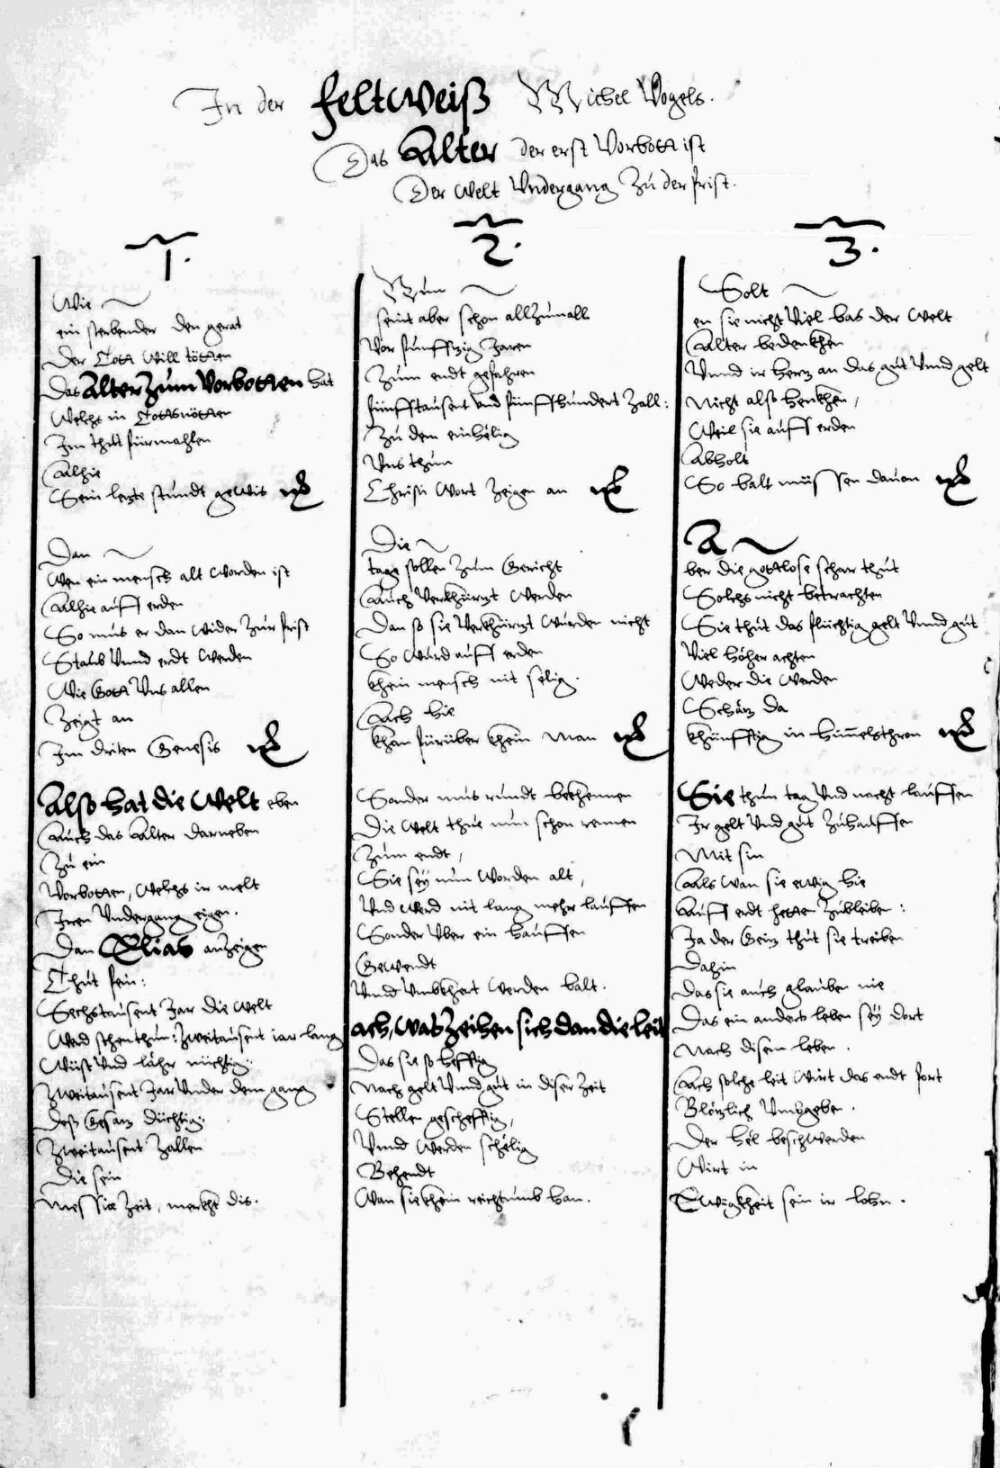 In der feltweiß Michel Vogels.
Das Alter der erst Vorbott ist
Der Welt Undergang Zu der frist.
1.
Wie
ein sterbender den gerat
Der Tott Will tötten
Das Alter Zum Vorbotten hat
Welchs in Tottsnötten
Im thůtt fürmahlen
Alhie
Sein letzte stundt gewis
Dan
Wen ein mensch alt Worden ist
Alhie auff erden
So mus er dan Wider Zur frist
Staub Vnnd erdt Werden
Wie Gott Vns allen
Zeigt an
Im driten Genesis
Also hat die Welt eben
Auch das Alter darneben
Zu ein
Vorbotten, Welchs ir melt
Iren Vndergang eigen.
Dan Elias anZeigen
Thut fein:
Sechstausent Jar die Welt
Werd stehn thun: Zweitausent iar lang
Wüst Vnd lähr nüchtig.
Zweitausent Jar Vnder dem gang
Deß Gesatz düchtig.
Zweitausent Zallen
Die sein
Messiae Zeit, merkht dis.
2.
Nun
seint aber schon allZumall
Vor funffzig Jaren
Zum endt gefahren
fünfftausent Vnd fünffhundert Zall:
Zu dem einhelig
Vns thun
Christi Wort Zeigen an
Die
tage sollen Zum Gericht
Auch Verkhürtzt Werden
Dan so sie Verkhürtzt Wurden nicht
So Wurd auff erden
khein mensch nit selig.
Ach hie
khan fürüber khein man
Sonder mus rundt bekhennen
Die Welt thue nun schon rennen
Zum endt,
Sie sey nun Worden alt,
Vnd Werd nit lang mehr lauffen
Sonder Vber ein hauffen
Gewendt
Vnnd Vmbkhert Werden balt.
ach, Was Zeihen sich dan die leit
Das sie so hefftig
Nach gelt Vnnd gut in diser Zeit
Stellen gescheftig,
Vnnd Werden schelig
Behendt
Wan sie khein reichtumb han.
3.
Solt
en sie nicht Viel bas der Welt
Alter bedenkhen
Vnnd ir hertz an das gut Vnnd gelt
Nicht also henkhen,
Weil sie auff erden
Abholt
So balt müssen dauon
A
ber die gottlose schar thut
Solchs nicht betrachten
Sie thut das flüchtig gelt Vnnd gut
Viel höher achten
Weder die Werden
Schätz da
khünfftig in himmelsthron
Sie thun tag Vnd nacht lauffen
Ir gelt Vnd gut Zuhauffen
Mit sin
Als Wan sie ewig hie
Auff erdt hetten Zübleiben:
Ja der Geitz thut sie treiben
Dahin
Das sie auch glauben nie
Das ein anders leben sey dort
Nach disem leben.
Ach solche leit Wirt das endt fort
Blötzlich Vmbgeben.
Der hel beschwerden
Wirt in
Ewigkheit sein ir lohn.